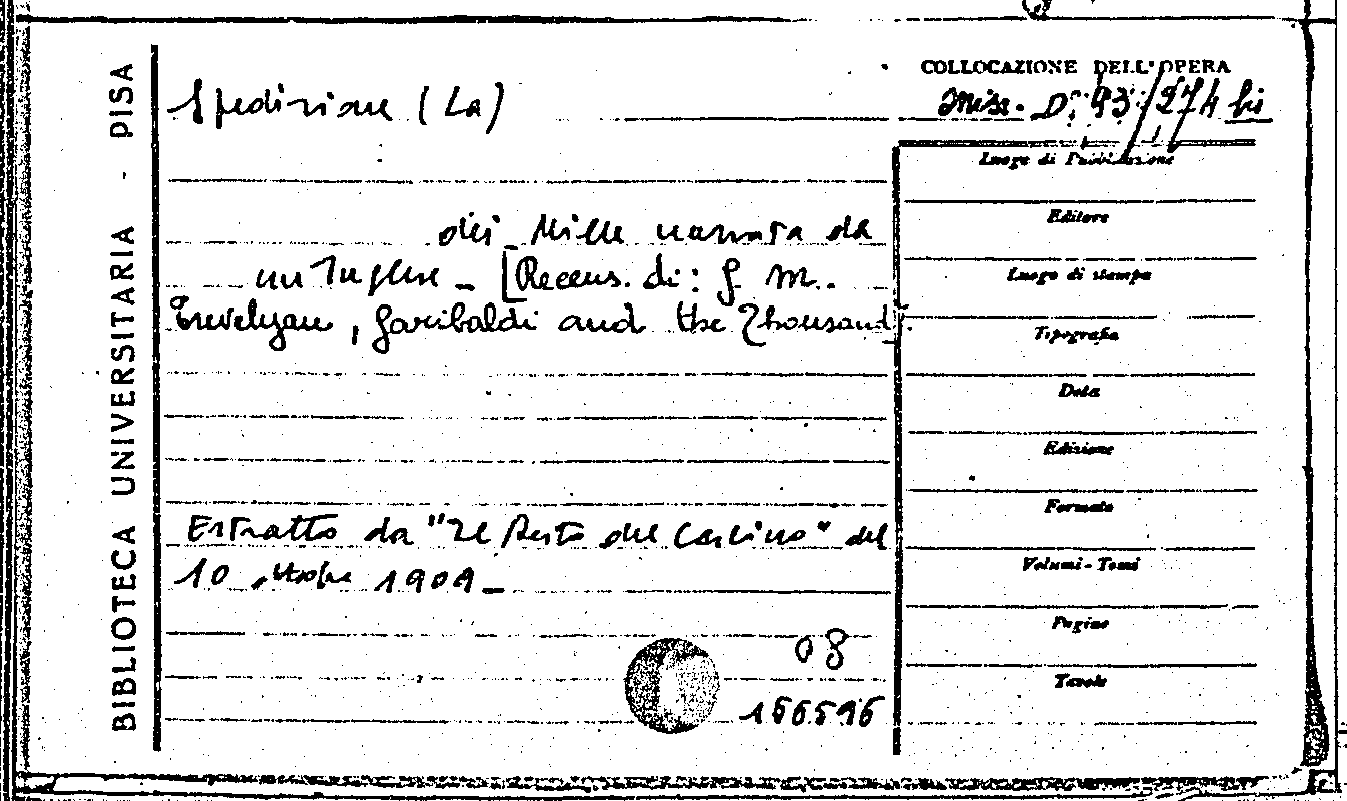 BIBLIOTECA UNIVERSITARIA - PISA
Spedizione (La)
COLLOCAZIONE DELL'OPERA
Misc. D. 93/274 bis
Luogo di Pubblicazione
dei Mille narrata da
un Inglese - [Recens. di: G. M.
Trevelyan, Garibaldi and the Thousand].
Editore
Luogo di stampa
Tipografia
Data
Edizione
Formato
Volumi - Tomi
Pagine
Tavole
Estratto da "Il Resto del Carlino" del
10 ottobre 1909 -
08
166596